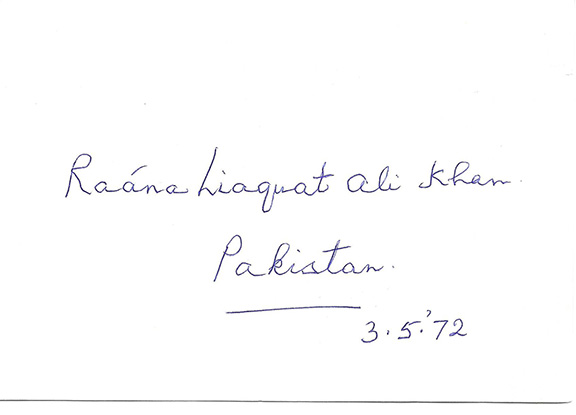 Raána Liaquat Ali Khan.
Pakistan.
3.5.'72